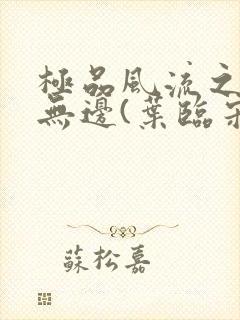 極品風流之
無邊(葉臨
蘇松嘉